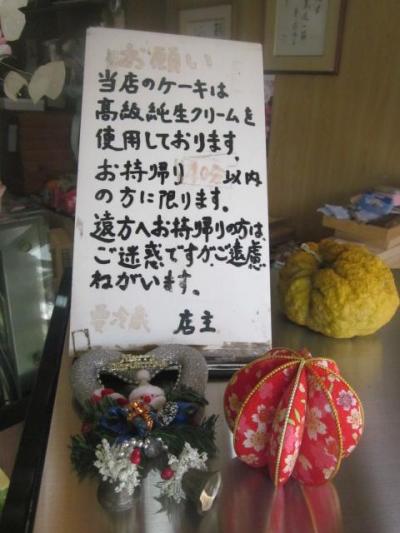 お願い
当店のケーキは
高級純生クリームを
使用しております。
お持帰り10分以内
の方に限ります。
遠方へお持帰りの方は、
ご迷惑ですがご遠慮
ねがいます。
要冷蔵 店主
Merry Christmas